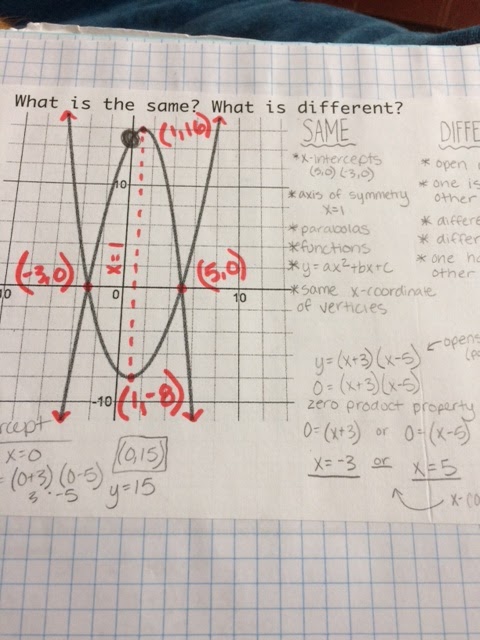 What is the same? What is different?
SAME
*x-intercepts
(5,0) (-3,0)
*axis of symmetry
x=1
*parabolas
*functions
*y=ax²+bx+c
*same x-coordinate
of verticies
* open
* one is
other
*
*
* one
other
(1,16)
10
x=1
(-3,0)
(5,0)
0
10
-10
(1,-8)
x=0
=(0+3)(0-5)
3·-5
(0,15)
y=15
y=(x+3)(x-5)
0=(x+3)(x-5)
zero product property
0=(x+3) or 0=(x-5)
x=-3 or x=5